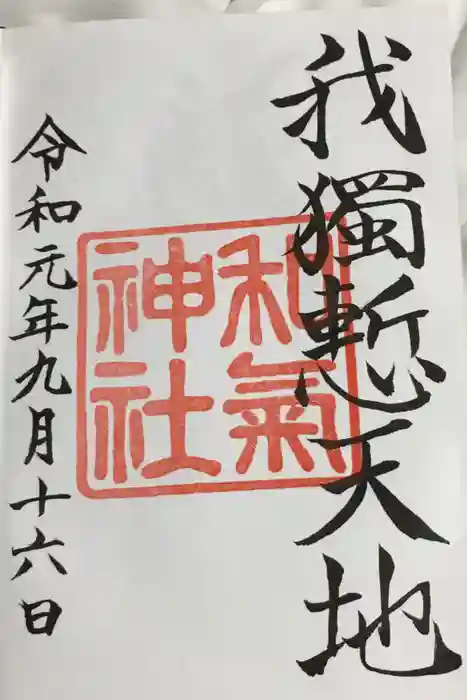 我獨慙天地
和氣
神社
令和元年九月十六日